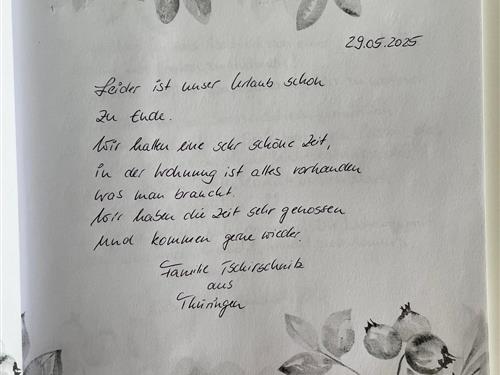 29.05.2025
Leider ist unser Urlaub schon
zu Ende.
Wir hatten eine sehr schöne Zeit,
in der Wohnung ist alles vorhanden
was man braucht.
Wir haben die Zeit sehr genossen
und kommen gerne wieder.
Familie Tschirschnitz
aus
Thüringen